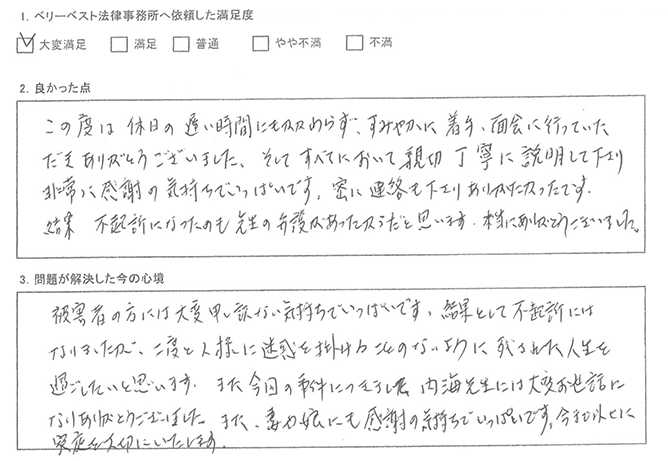 1. ベリーベスト法律事務所へ依頼した満足度
大変満足 満足 普通 やや不満 不満
2. 良かった点
この度は 休日の 遅い時間にも関わらず、すみやかに 着手、面会に行っていた
だき ありがとうございました。そして すべてにおいて 親切 丁寧に 説明して下さり
非常に 感謝の気持ちでいっぱいです。密に 連絡も下さり ありがたかったです。
結果 不起訴になったのも 先生の弁護があったからだと思います。本当にありがとうございました。
3. 問題が解決した今の心境
被害者の方には大変申し訳ない気持ちでいっぱいです。結果として不起訴には
なりましたが、二度と人様に迷惑を掛けることのないように 残された人生を
過ごしたいと思います。また今回の事件につきまして 内海先生には大変お世話に
なりありがとうございました。また、妻や娘にも感謝の気持ちでいっぱいです。今まで以上に
家庭を大切にいたします。